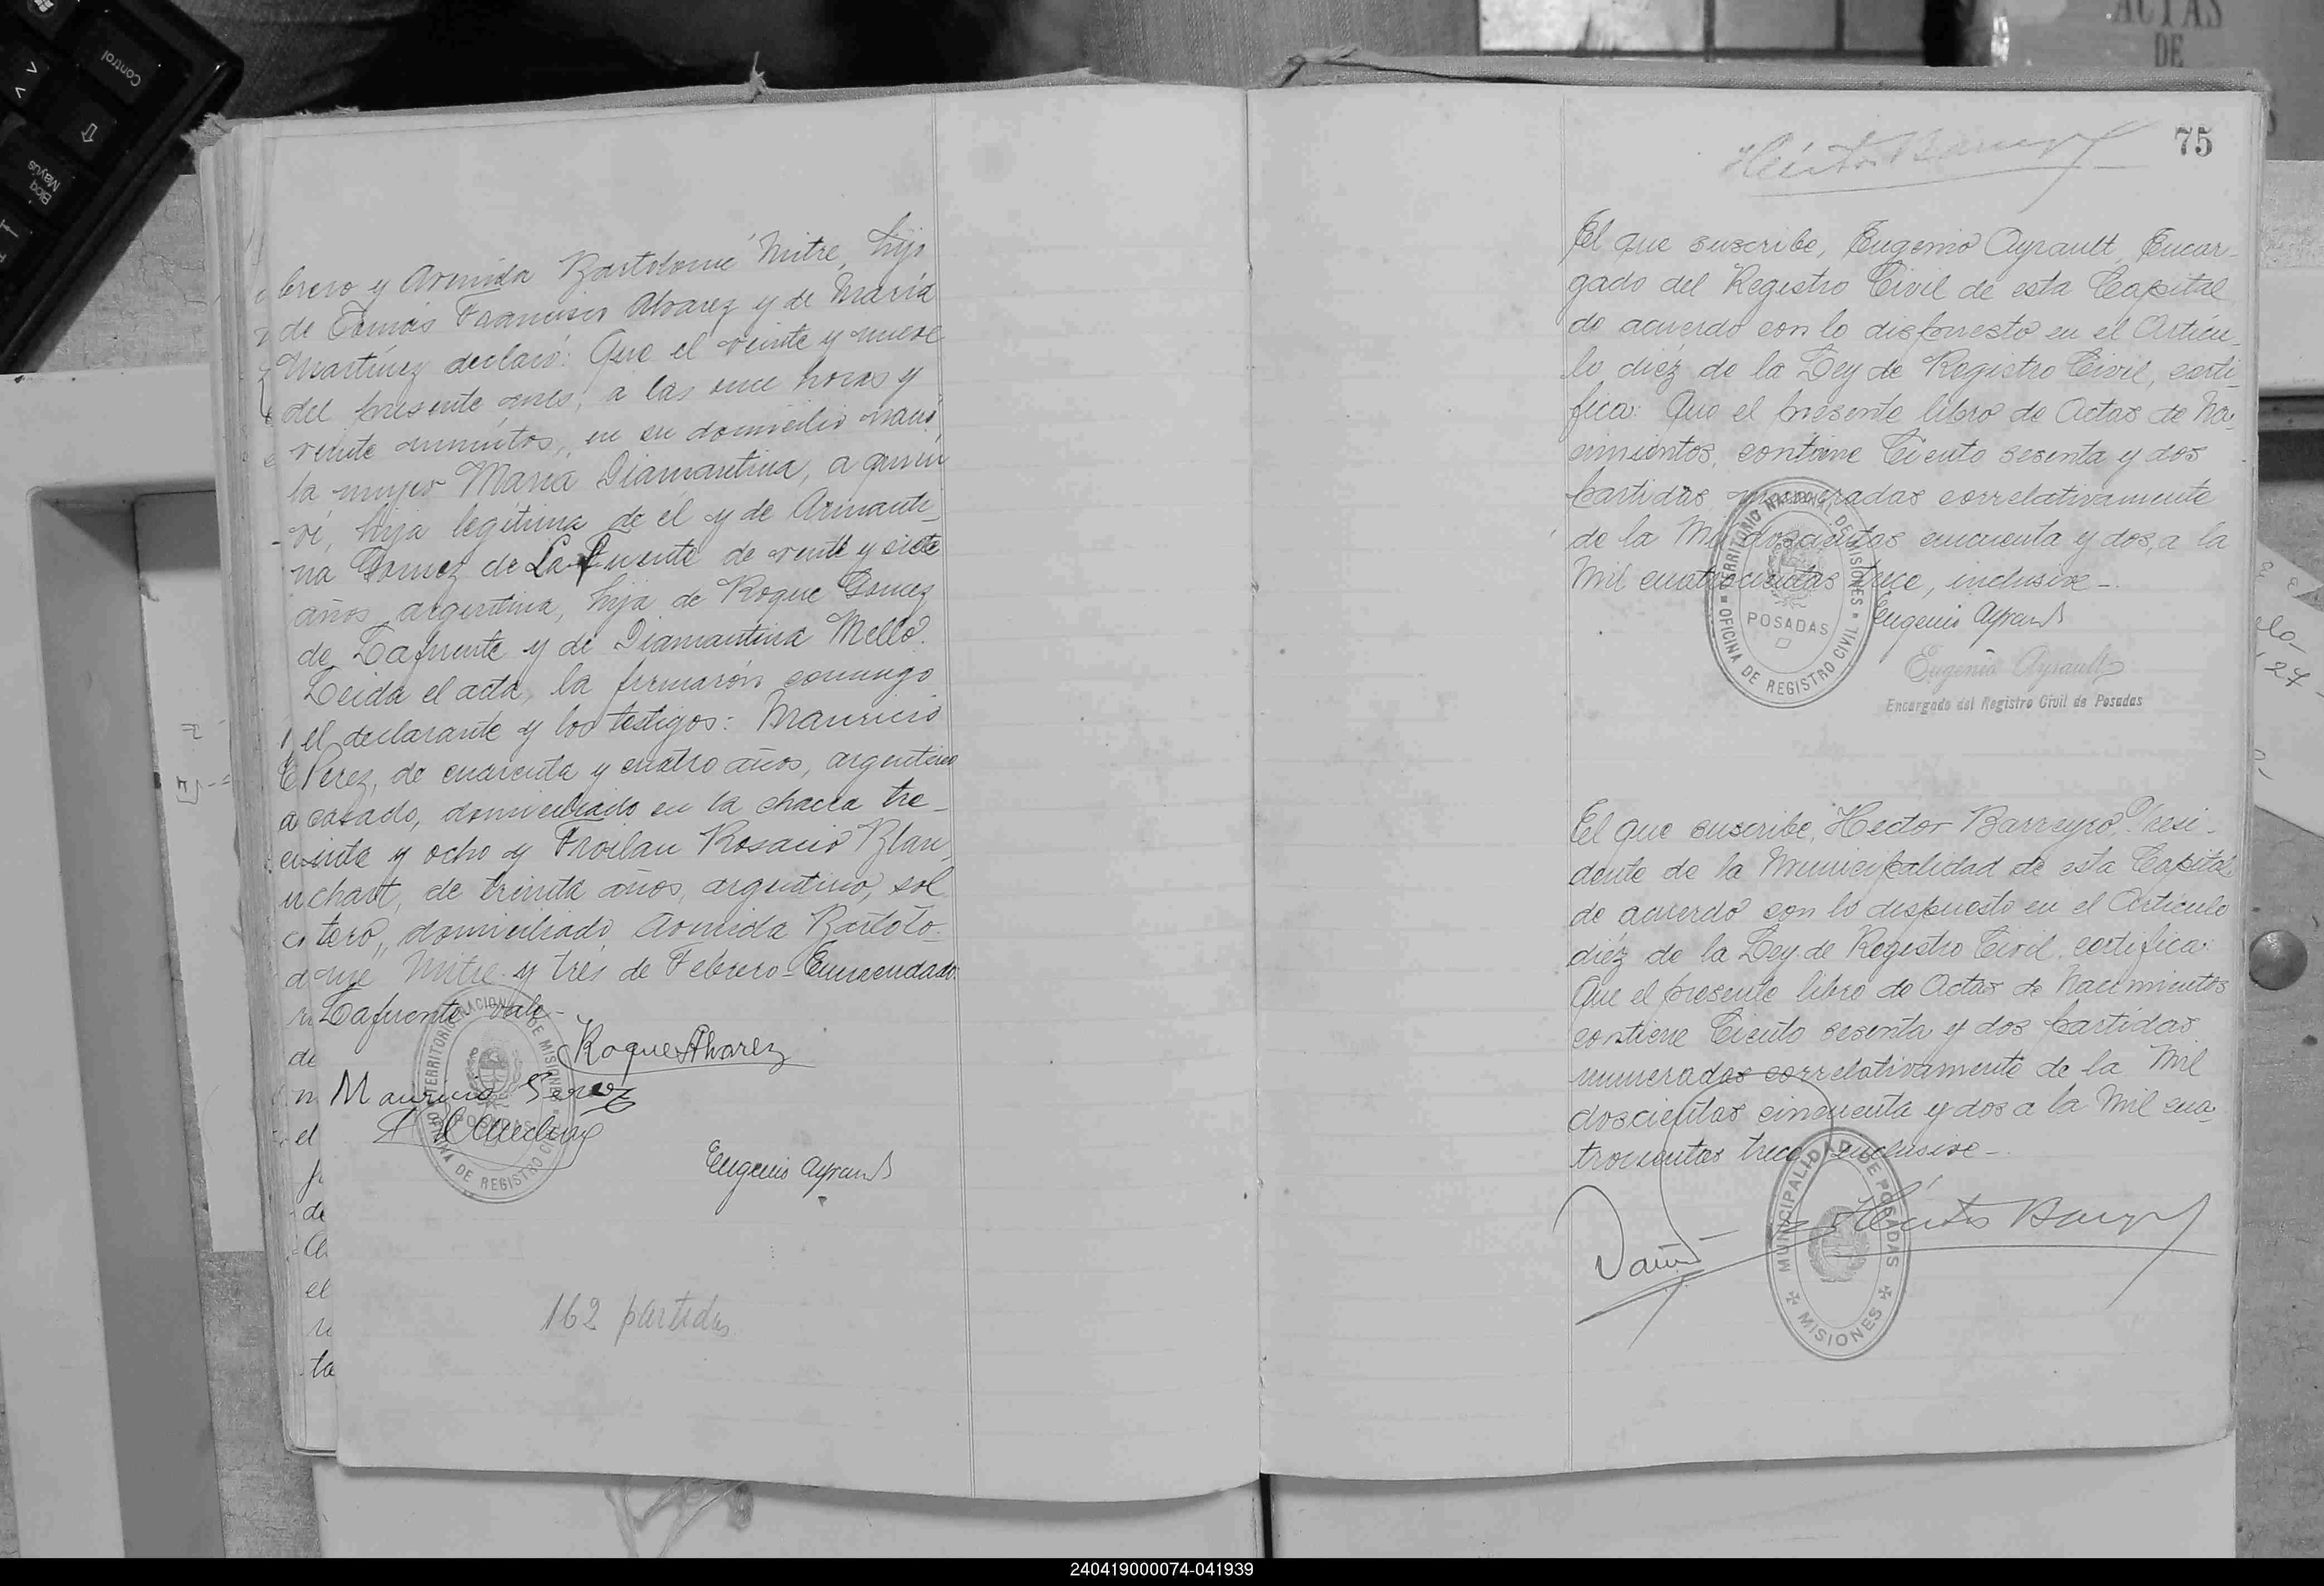 brero y Avenida Bartolomé Mitre, hijo
de Tomás Francisco Alvarez y de María
Martínez declaró: Que el veinte y nueve
del presente mes, a las once horas y
veinte minutos, en su domicilio nació
la mujer María Diamantina, a quien
ví, hija legítima de él y de Armanti-
na Gomez de La fuente de veinte y siete
años, argentina, hija de Roque Gomez
de Lafuente y de Diamantina Mello.
Leida el acta, la firmarón conmigo
el declarante y los testigos: Mauricio
Perez, de cuarenta y cuatro años, argentino
casado, domiciliado en la chacra tre-
inta y ocho y Froilan Rosario Blan
chart, de treinta años, argentino, sol
tero, domiciliado Avenida Bartolo-
mé Mitre y tres de Febrero - Enmendado
Lafuente vale -
Roque Alvarez
Mauricio Perez
Eugenio Ayrault
TERRITORIO NACIONAL DE MISIONES
POSADAS
OFICINA DE REGISTRO CIVIL
162 partidas
75
Héctor Barreyro
El que suscribe, Eugenio Ayrault, Encar-
gado del Registro Civil de esta Capital
de acuerdo con lo dispuesto en el Artícu-
lo diez de la Ley de Registro Civil, certi-
fica: Que el presente libro de Actas de Na-
cimientos, contiene Ciento sesenta y dos
partidas numeradas correlativamente
de la Mil doscientas cincuenta y dos, a la
Mil cuatrocientas trece, inclusive -
Eugenio Ayrault
TERRITORIO NACIONAL DE MISIONES
POSADAS
OFICINA DE REGISTRO CIVIL
Eugenio Ayrault
Encargado del Registro Civil de Posadas
El que suscribe, Hector Barreyro, Presi-
dente de la Municipalidad de esta Capital
de acuerdo con lo dispuesto en el Artículo
diez de la Ley de Registro Civil, certifica:
Que el presente libro de Actas de Nacimientos
contiene Ciento sesenta y dos partidas
numeradas correlativamente de la Mil
doscientas cincuenta y dos a la Mil cua-
trocientas trece, inclusive -
Héctor Barreyro
MUNICIPALIDAD DE POSADAS
MISIONES
ACTAS
DE
Control
Bloq
Mayús
240419000074-041939